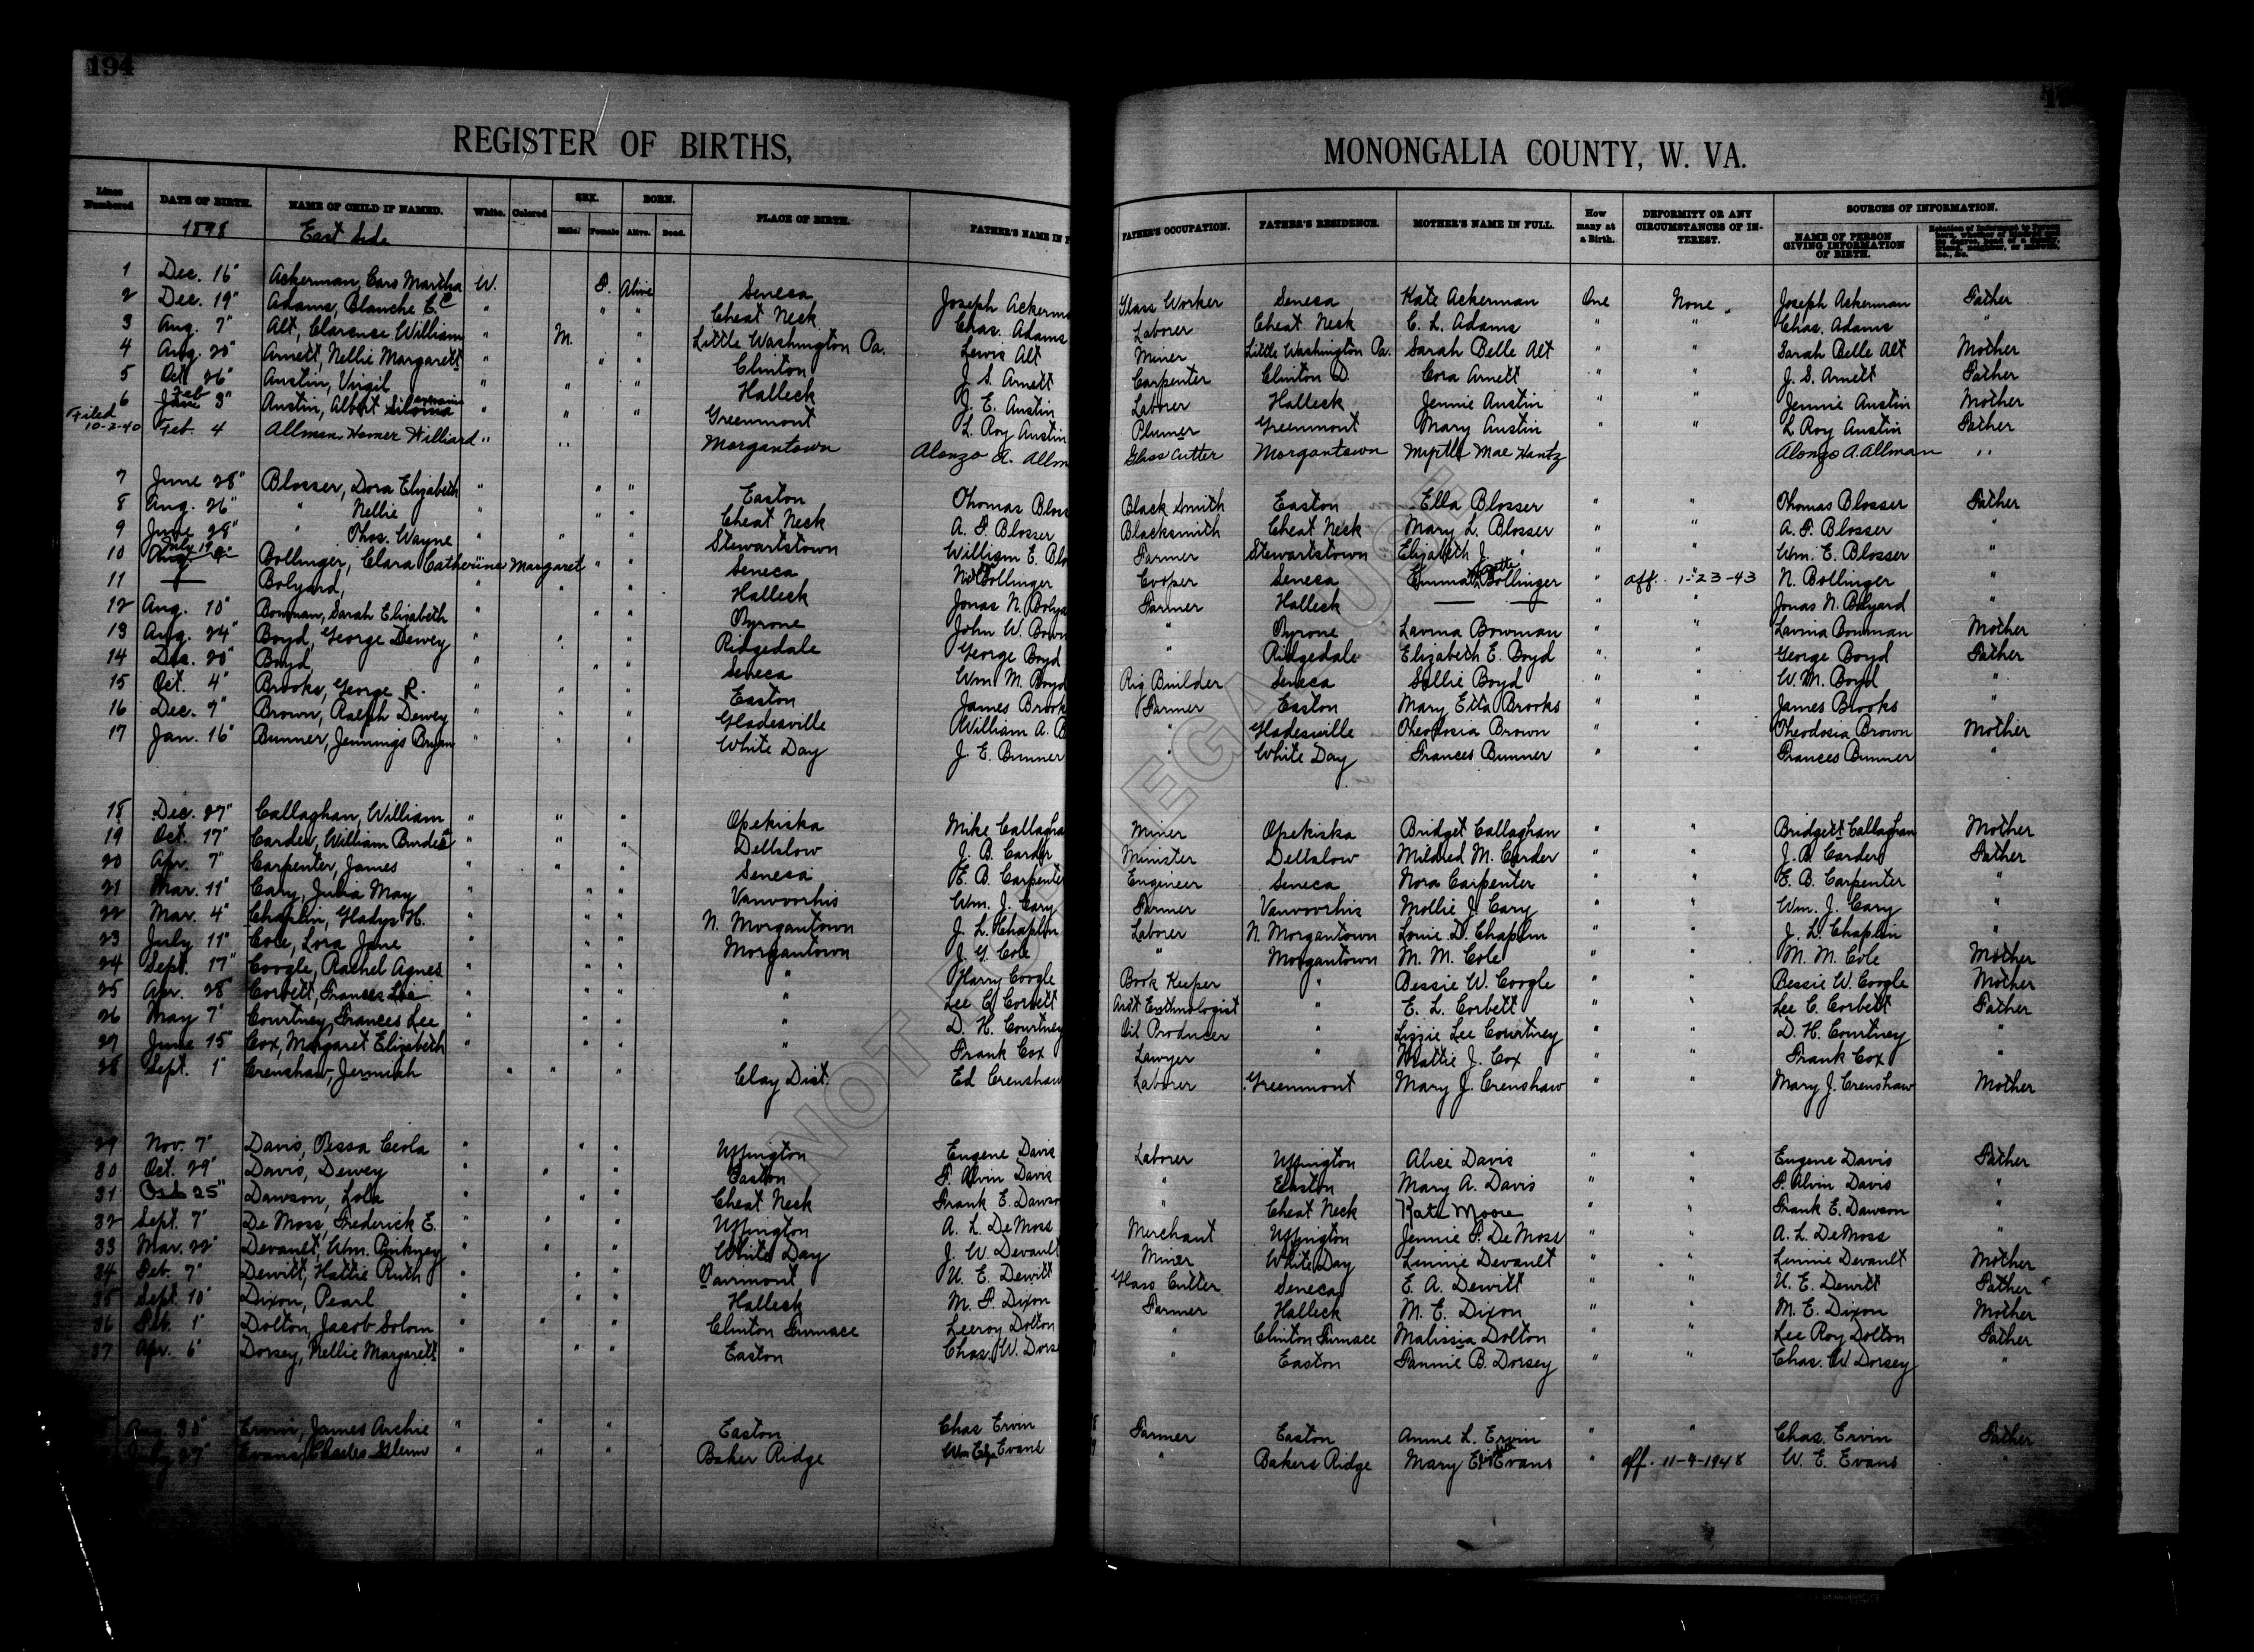 194
REGISTER OF BIRTHS,
MONONGALIA COUNTY, W. VA.
Lines Numbered DATE OF BIRTH. NAME OF CHILD IF NAMED. White. Colored SEX. Male Female BORN. Alive. Dead. PLACE OF BIRTH. FATHER'S NAME IN F
FATHER'S OCCUPATION. FATHER'S RESIDENCE. MOTHER'S NAME IN FULL. How many at a Birth. DEFORMITY OR ANY CIRCUMSTANCES OF INTEREST. SOURCES OF INFORMATION. NAME OF PERSON GIVING INFORMATION OF BIRTH.
1898 East Side
1 Dec. 16" Ackerman, Cars Martha W. F. Alive Seneca Joseph Ackerma Glass Worker Seneca Kate Ackerman One None Joseph Ackerman Father
2 Dec. 19" Adams, Blanche E. C " " " Cheat Neck Chas. Adams Laborer Cheat Neck C. L. Adams " " Chas. Adams "
3 Aug. 7" Alt, Clarence William " M. " Little Washington Pa. Lewis Alt Miner Little Washington Pa. Sarah Belle Alt " " Sarah Belle Alt Mother
4 Aug. 20" Arnett, Nellie Margarett " " " Clinton J. S. Arnett Carpenter Clinton D. Cora Arnett " " J. S. Arnett Father
5 Oct 26" Austin, Virgil " " " Halleck J. E. Austin Laborer Halleck Jennie Austin " " Jennie Austin Mother
6 Feb 3" Austin, Albert " " " Greenmont L. Roy Austin Plumer Greenmont Mary Austin " " L Roy Austin Father
Filed 10-2-40 Feb. 4 Allman, Homer Williard " " Morgantown Alonzo A. Allm Glass Cutter Morgantown Myrtle Mae Hantz Alonzo A. Allman "
7 June 28" Blosser, Dora Elizabeth " " " Easton Thomas Bloss Black Smith Easton Ella Blosser " " Thomas Blosser Father
8 Aug. 26" " Nellie " " " Cheat Neck A. F. Blosser Blacksmith Cheat Neck Mary L. Blosser " " A. F. Blosser "
9 June 29" " Thos. Wayne " " " Stewartstown William E. Blo Farmer Stewartstown Elizabeth J. " " " Wm. E. Blosser "
10 July 19 Bollinger, Clara Catherine Margaret " " Seneca Bollinger Cooper Seneca Emma Bollinger " aff. 1-23-43 N. Bollinger "
11 — Bolyard, " " " Halleck Jonas N. Bolya Farmer Halleck — — " " Jonas N. Bolyard "
12 Aug. 10" Bowman, Sarah Elizabeth " " " Tyrone John W. Bown " Tyrone Lavina Bowman " " Lavina Bowman Mother
13 Aug. 24" Boyd, George Dewey " " " Ridgedale George Boyd " Ridgedale Elizabeth E. Boyd " " George Boyd Father
14 Dec. 20" Boyd, " " " Seneca Wm M. Boyd Rig Builder Seneca Sallie Boyd " " W. M. Boyd "
15 Oct. 4" Brooks, George R. " " " Easton James Brook Farmer Easton Mary Etta Brooks " " James Brooks "
16 Dec. 7" Brown, Ralph Dewey " " " Gladesville William A. B " Gladesville Theodosia Brown " " Theodosia Brown Mother
17 Jan. 16" Bunner, Jennings Bryan " " " White Day J. E. Bunner " White Day Frances Bunner " " Frances Bunner "
18 Dec. 27" Callaghan, William " " " Opekiska Mike Callagha Miner Opekiska Bridget Callaghan " " Bridgett Callaghan Mother
19 Oct. 17" Carder, William Burdett " " " Dellslow J. B. Carder Minister Dellslow Mildred M. Carder " " J. B. Carder Father
20 Apr. 7" Carpenter, James " " " Seneca E. B. Carpente Engineer Seneca Nora Carpenter " " E. B. Carpenter "
21 Mar. 11" Cary, Julia May " " " Vanvoorhis Wm. J. Cary Farmer Vanvoorhis Mollie J. Cary " " Wm. J. Cary "
22 Mar. 4" Chaplin, Gladys H. " " " N. Morgantown J. L. Chaplin Laborer N. Morgantown Louie D. Chaplin " " J. L. Chaplin "
23 July 11" Cole, Lora Jane " " " Morgantown J. G. Cole " Morgantown M. M. Cole " " M. M. Cole Mother
24 Sept. 17" Coogle, Rachel Agnes " " " " Harry Coogle Book Keeper " Bessie W. Coogle " " Bessie W. Coogle Mother
25 Apr. 28" Corbett, Frances " " " " Lee C. Corbett " E. L. Corbett " " Lee C. Corbett Father
26 May 7" Courtney, Frances Lee " " " " D. H. Courtney Oil Producer " Lizzie Lee Courtney " " D. H. Courtney "
27 June 15" Cox, Margaret Elizabeth " " " " Frank Cox Lawyer " Mattie J. Cox " " Frank Cox "
28 Sept. 1" Crenshaw, Jermiah " " " Clay Dist. Ed Crenshaw Laborer Greenmont Mary J. Crenshaw " " Mary J. Crenshaw Mother
29 Nov. 7" Davis, Tessa Ceola " " " Uffington Eugene Davis Laborer Uffington Alice Davis " " Eugene Davis Father
30 Oct. 29" Davis, Dewey " " " Easton F. Alvin Davis " Easton Mary A. Davis " " F. Alvin Davis "
31 Oct 25" Dawson, Lola " " " Cheat Neck Frank E. Dawso " Cheat Neck Kate Moore " " Frank E. Dawson "
32 Sept. 7" De Moss, Frederick E. " " " Uffington A. L. DeMoss Merchant Uffington Jennie F. De Moss " " A. L. DeMoss "
33 Mar. 22" Devault, Wm. Pinkney " " " White Day J. W. Devault Miner White Day Linnie Devault " " Linnie Devault Mother
34 Feb. 7" Dewitt, Hattie Ruth " " " Fairmont U. E. Dewitt Glass Cutter Seneca E. A. Dewitt " " U. E. Dewitt Father
35 Sept. 10" Dixon, Pearl " " " Halleck M. F. Dixon Farmer Halleck M. E. Dixon " " M. E. Dixon Mother
36 Feb. 1" Dolton, Jacob Solom " " " Clinton Furnace Leeroy Dolton " Clinton Furnace Malissia Dolton " " Lee Roy Dolton Father
37 Apr. 6" Dorsey, Nellie Margarett " " " Easton Chas. W. Dors " Easton Fannie B. Dorsey " " Chas. W Dorsey "
Aug. 30" Ervin, James Archie " " " Easton Chas Ervin Farmer Easton Annie L. Ervin " " Chas. Ervin Father
July 27" Evans, Charles Glenn " " " Baker Ridge Evans " Bakers Ridge Mary Evans " aff. 11-9-1948 W. E. Evans "
NOT LEGAL USE